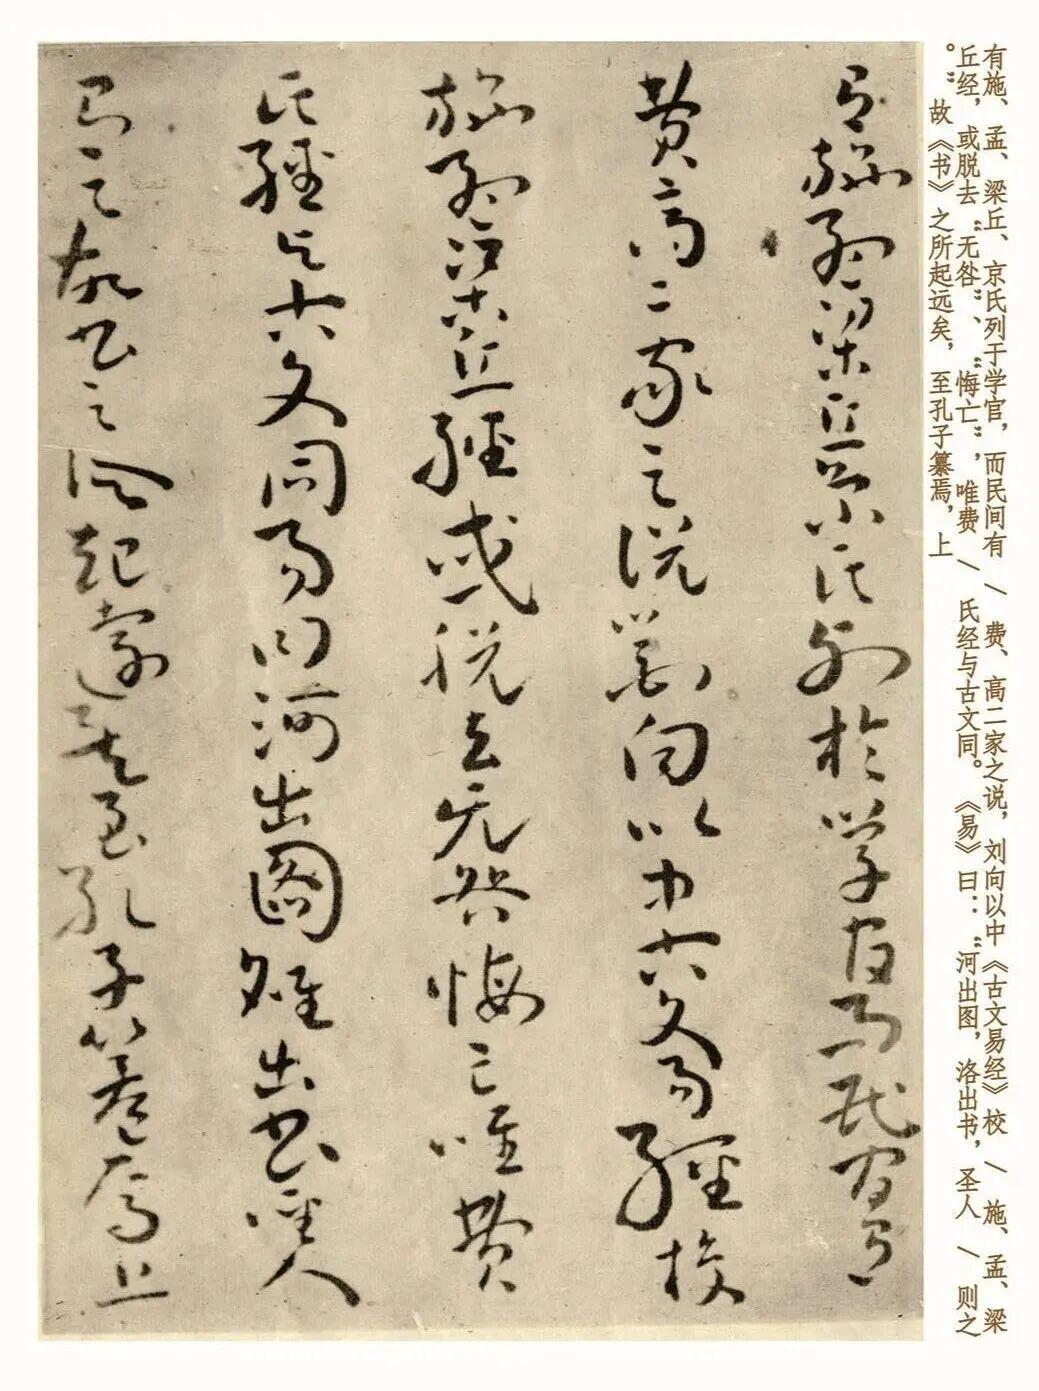 有施、孟、梁丘、京氏列于学官，而民间有 / 费、高二家之说，刘向以中《古文易经》校 \ 施、孟、梁
丘经，或脱去“无咎”、“悔亡”，唯费 / 氏经与古文同。《易》曰：“河出图，洛出书，圣人 \ 则之
。”故《书》之所起远矣，至孔子纂焉，上
有施孟梁丘京氏列於学官而民間有
費高二家之說劉向以中古文易經校
施孟梁丘經或脫去无咎悔亡唯費
氏經与古文同易曰河出圖雒出書聖人
則之故書之所起遠矣至孔子篹焉上